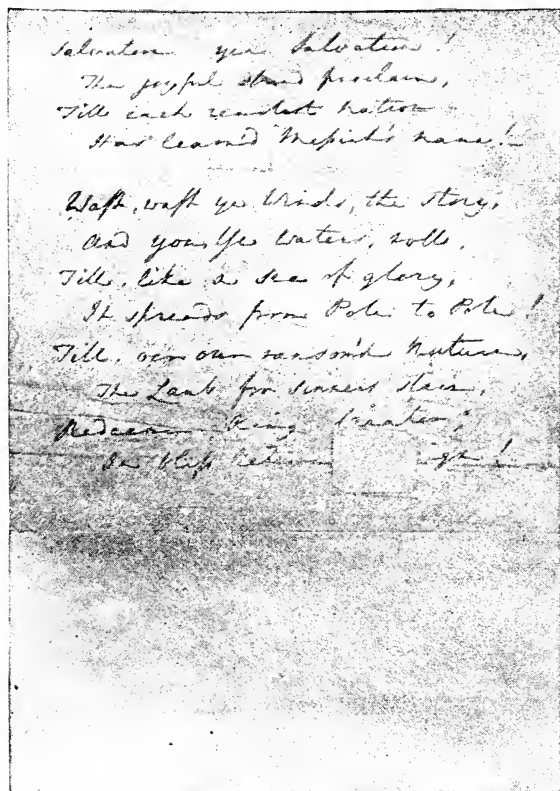 Salvation yea Salvation!
The joyful sound proclaim,
Till each remotest nation
Has learn'd Messiah's name!
Waft, waft ye Winds, the story,
And you Ye Waters, roll,
Till, like a sea of glory,
It spreads from Pole to Pole!
Till, o'er our ransom'd Nature,
The Lamb for sinners slain,
Redeemer King Creator,
In bliss return